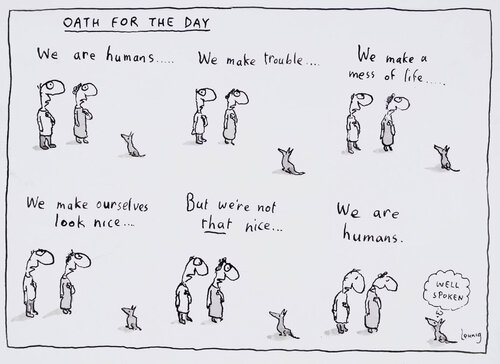 OATH FOR THE DAY
We are humans.....
We make trouble....
We make a
mess of life.....
We make ourselves
look nice...
But we're not
that nice...
We are
humans.
WELL
SPOKEN
Leunig